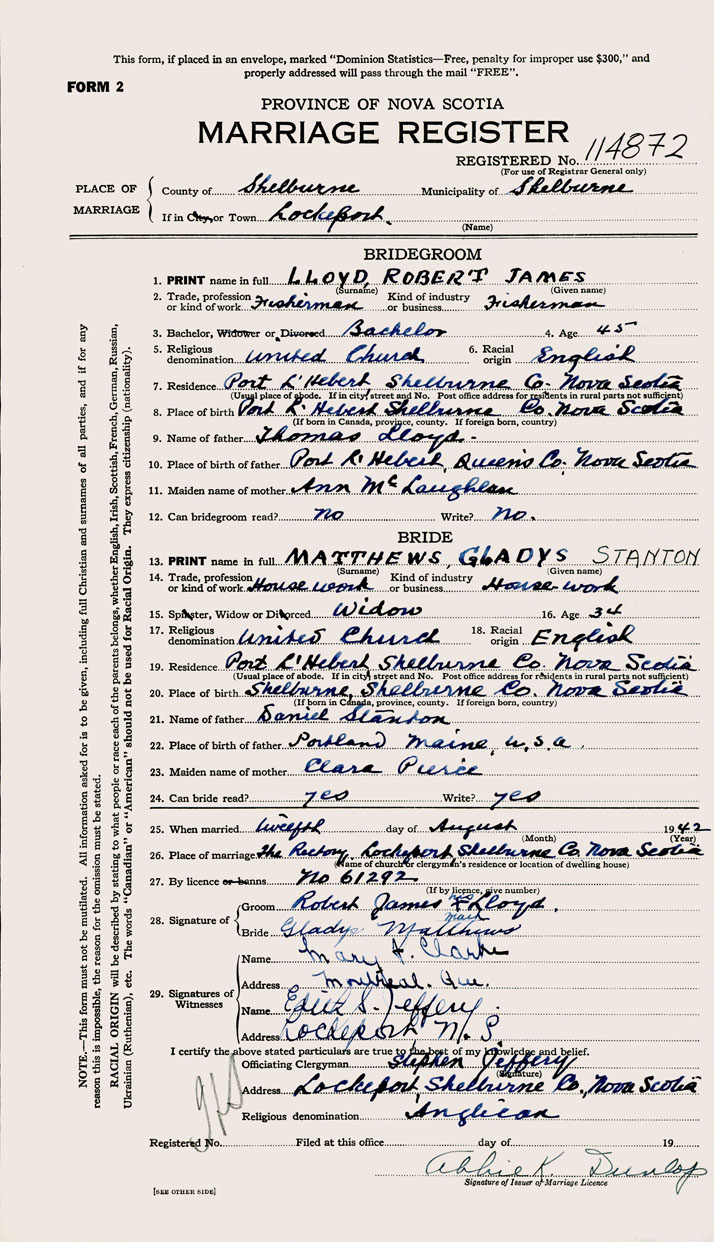 This form, if placed in an envelope, marked "Dominion Statistics—Free, penalty for improper use $300," and
properly addressed will pass through the mail "FREE".
FORM 2
PROVINCE OF NOVA SCOTIA
MARRIAGE REGISTER
REGISTERED No. 114872
(For use of Registrar General only)
PLACE OF MARRIAGE
County of Shelburne Municipality of Shelburne
If in City, or Town Lockeport.
(Name)
BRIDEGROOM
1. PRINT name in full LLOYD, ROBERT JAMES
(Surname) (Given name)
2. Trade, profession or kind of work Fisherman Kind of industry or business Fisherman
3. Bachelor, Widower or Divorced Bachelor 4. Age 45
5. Religious denomination United Church 6. Racial origin English
7. Residence Port L'Hebert, Shelburne Co. Nova Scotia
(Usual place of abode. If in city street and No. Post office address for residents in rural parts not sufficient)
8. Place of birth Port L'Hebert Shelburne Co. Nova Scotia
(If born in Canada, province, county. If foreign born, country)
9. Name of father Thomas Lloyd.
10. Place of birth of father Port L'Hebert, Queens Co. Nova Scotia
11. Maiden name of mother Ann McLaughlan
12. Can bridegroom read? no Write? no.
BRIDE
13. PRINT name in full MATTHEWS, GLADYS STANTON
(Surname) (Given name)
14. Trade, profession or kind of work House work Kind of industry or business House work
15. Spinster, Widow or Divorced Widow 16. Age 34
17. Religious denomination United Church 18. Racial origin English
19. Residence Port L'Hebert, Shelburne Co. Nova Scotia
(Usual place of abode. If in city street and No. Post office address for residents in rural parts not sufficient)
20. Place of birth Shelburne, Shelburne Co. Nova Scotia
(If born in Canada, province, county. If foreign born, country)
21. Name of father Daniel Stanton
22. Place of birth of father Portland Maine, U.S.A.
23. Maiden name of mother Clara Pierce
24. Can bride read? yes Write? yes
25. When married twelfth day of August 1942
(Month) (Year)
26. Place of marriage The Rectory, Lockeport, Shelburne Co. Nova Scotia
(Name of church or clergymen's residence or location of dwelling house)
27. By licence or banns No 61292
(If by licence, give number)
28. Signature of
Groom Robert James his X Lloyd.
mark
Bride Gladys Matthews
29. Signatures of Witnesses
Name Mary H. Clarke
Address Montreal. Que.
Name Edith S. Jeffery.
Address Lockeport N.S
I certify the above stated particulars are true to the best of my knowledge and belief.
Officiating Clergyman Stephen Jeffery
(Signature)
Address Lockeport, Shelburne Co., Nova Scotia
Religious denomination Anglican
Registered No. Filed at this office day of 19
Abbie K. Dunlop
Signature of Issuer of Marriage Licence
[SEE OTHER SIDE]
NOTE.—This form must not be mutilated. All information asked for is to be given, including full Christian and surnames of all parties, and if for any
reason this is impossible, the reason for the omission must be stated.
RACIAL ORIGIN will be described by stating to what people or race each of the parents belongs, whether English, Irish, Scottish, French, German, Russian,
Ukrainian (Ruthenian), etc. The words "Canadian" or "American" should not be used for Racial Origin. They express citizenship (nationality).